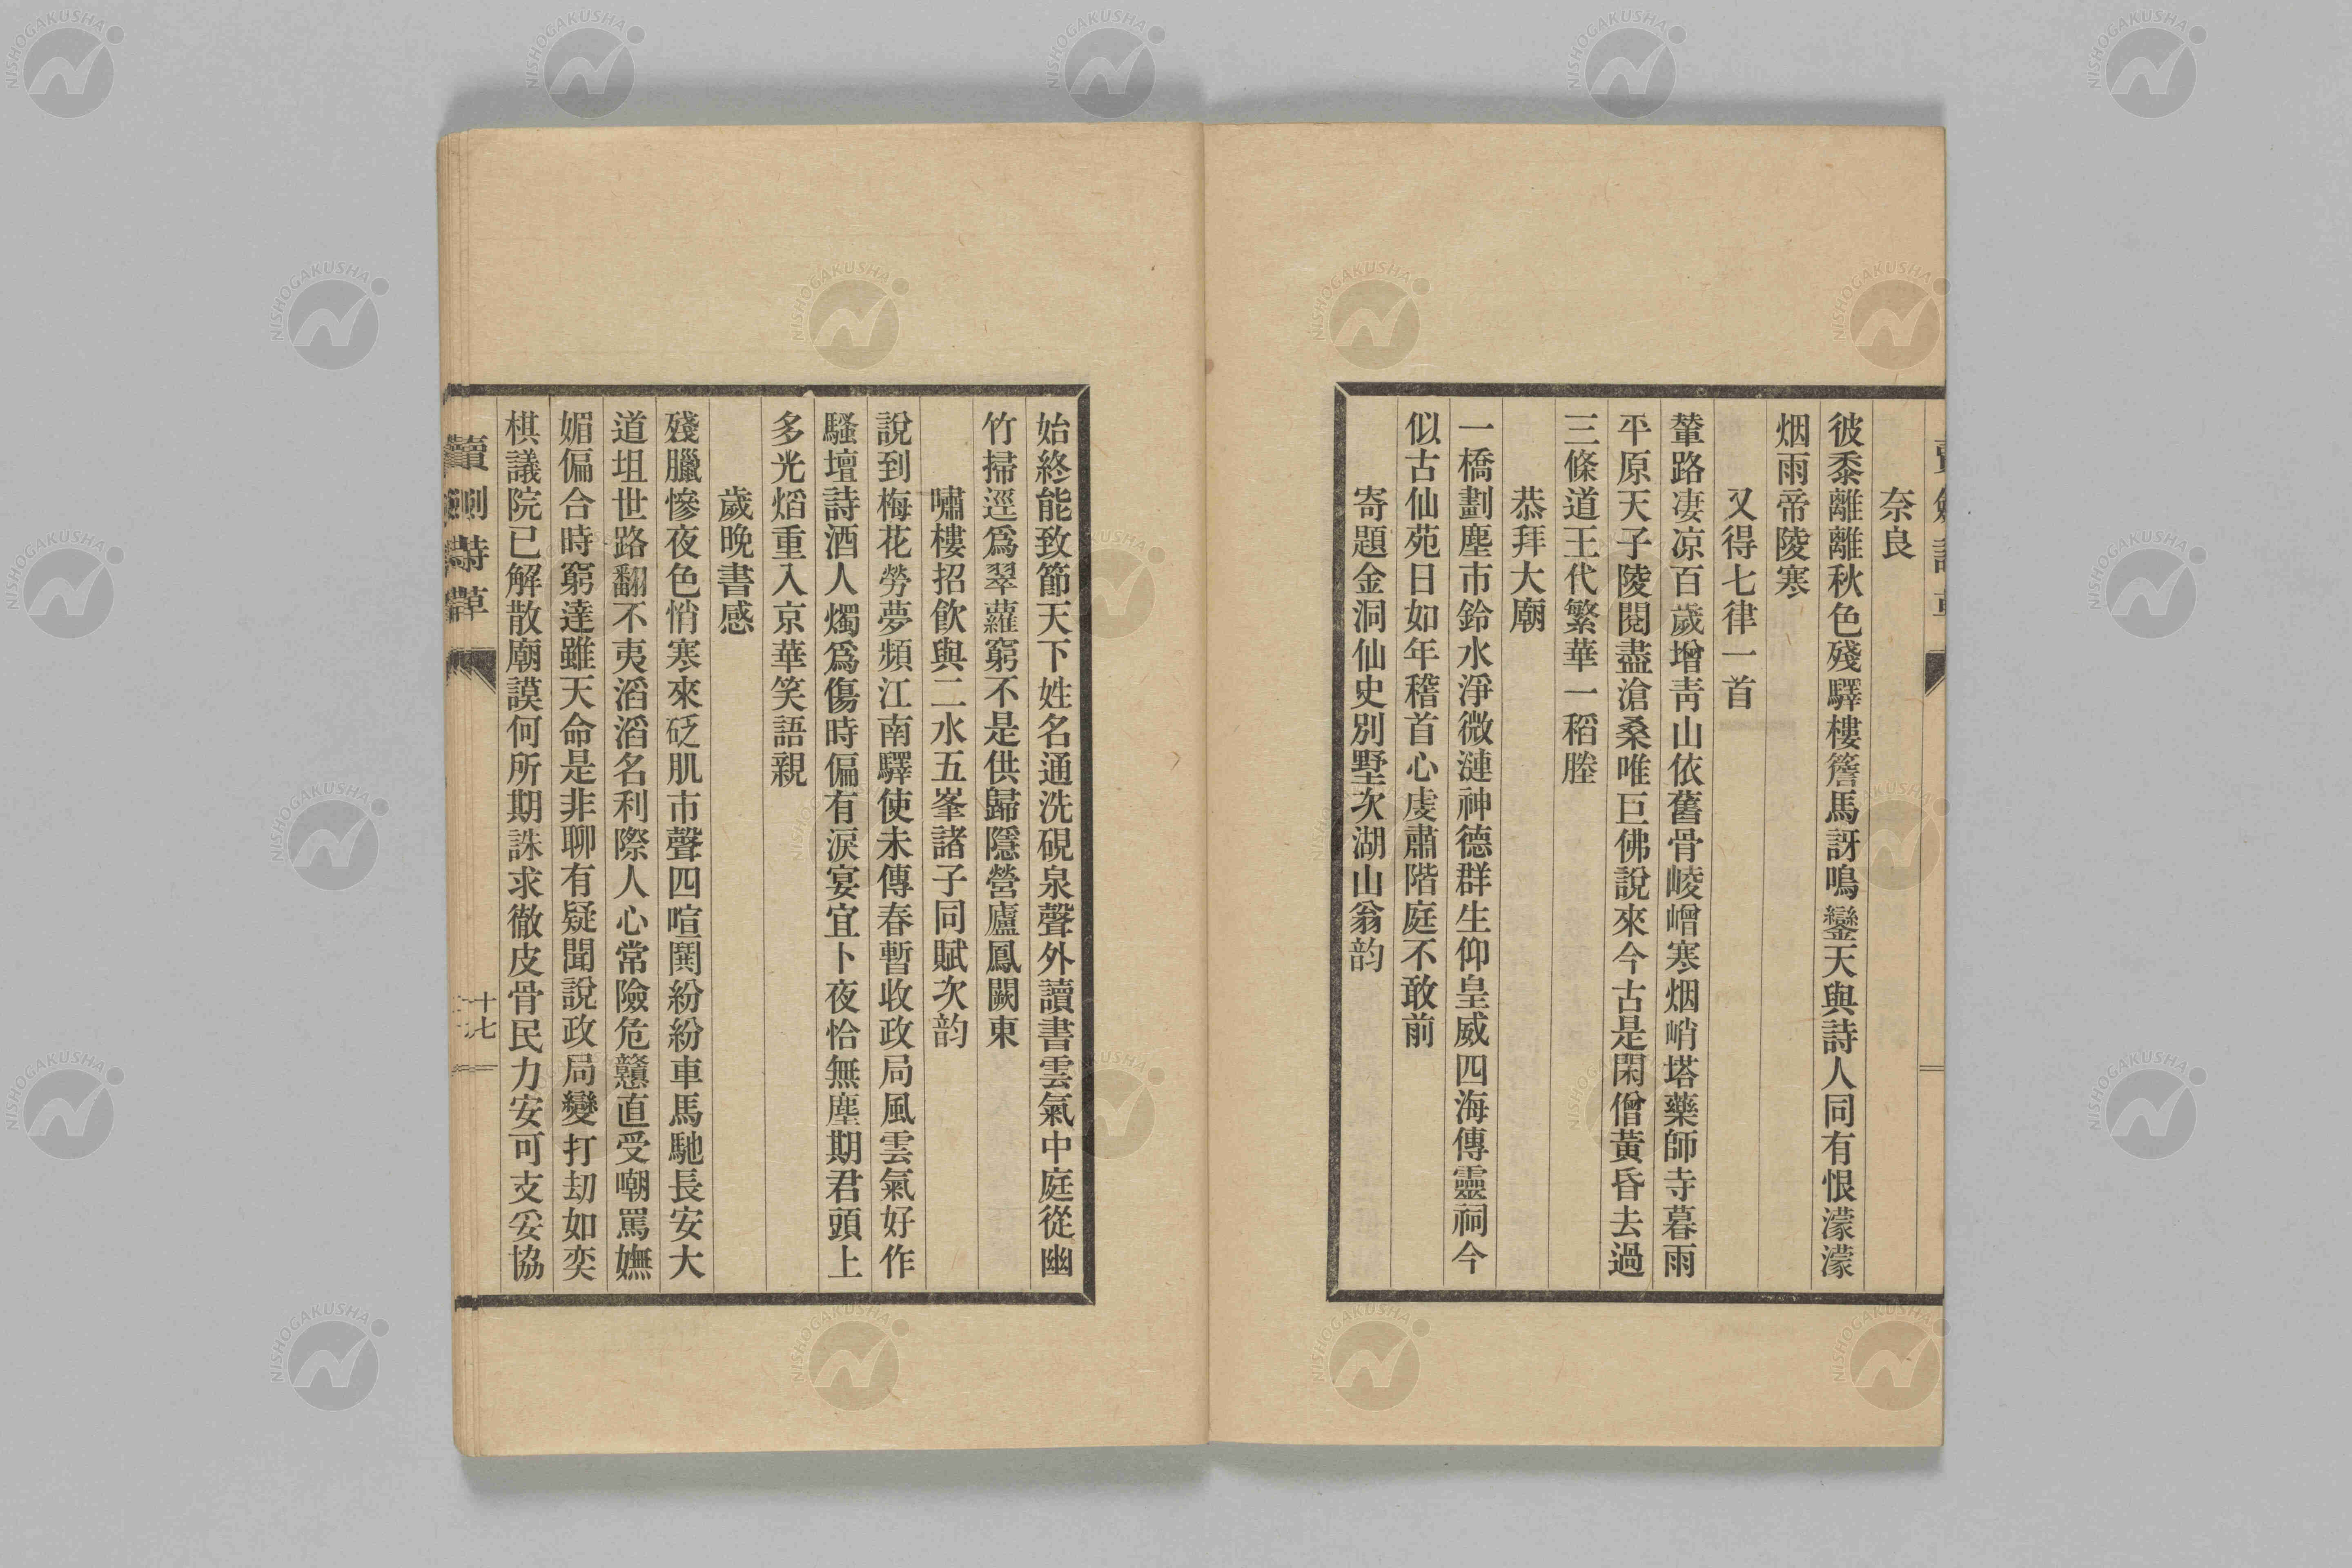 奈良
彼黍離離秋色殘驛樓簷馬訝鳴鑾天與詩人同有恨濛濛
烟雨帝陵寒
又得七律一首
輦路凄凉百歲增靑山依舊骨崚嶒寒烟峭塔藥師寺暮雨
平原天子陵閱盡滄桑唯巨佛說來今古是閑僧黃昏去過
三條道王代繁華一稻塍
恭拜大廟
一橋劃塵市鈴水淨微漣神德群生仰皇威四海傳靈祠今
似古仙苑日如年稽首心虔肅階庭不敢前
寄題金洞仙史別墅次湖山翁韵
始終能致節天下姓名通洗硯泉聲外讀書雲氣中庭從幽
竹掃逕爲翠蘿窮不是供歸隱營廬鳳闕東
嘯樓招飮與二水五峯諸子同賦次韵
說到梅花勞夢頻江南驛使未傳春暫收政局風雲氣好作
騷壇詩酒人燭爲傷時偏有淚宴宜卜夜恰無塵期君頭上
多光熖重入京華笑語親
歲晚書感
殘臘慘夜色悄寒來砭肌市聲四喧鬨紛紛車馬馳長安大
道坦世路翻不夷滔滔名利際人心常險危戇直受嘲罵嫵
媚偏合時窮達雖天命是非聊有疑聞說政局變打刧如奕
棋議院已解散廟謨何所期誅求徹皮骨民力安可支妥協
賣劍詩草
十七